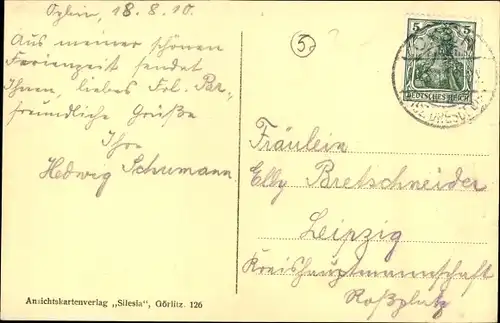 Oybin, 18.8.10.
Aus meiner schönen
Ferienzeit sendet
Ihnen, liebes Frl. Br.,
freundliche Grüße
Ihre
Hedwig Schumann.
5
5 5
DEUTSCHES REICH
DRESDEN
Fräulein
Elly Bretschneider
Leipzig
Kreishauptmannschaft
Roßplatz
Ansichtskartenverlag „Silesia“, Görlitz. 126